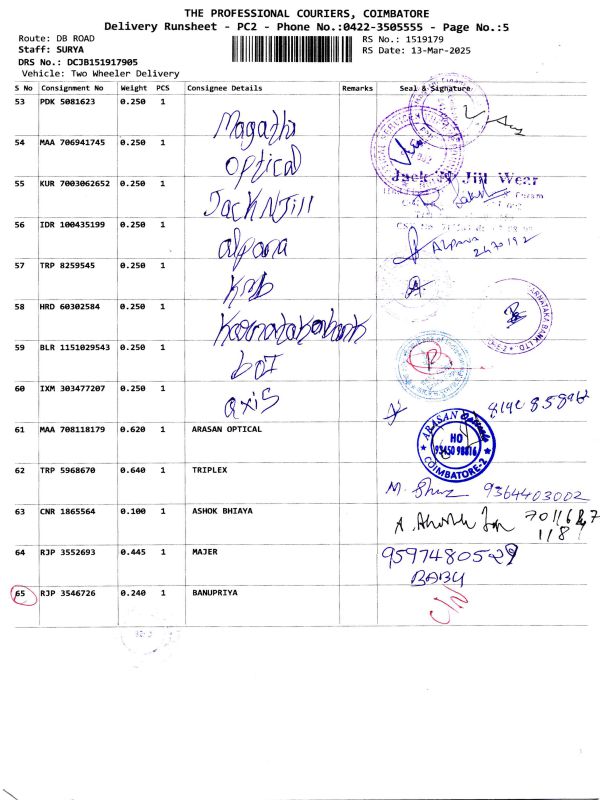 THE PROFESSIONAL COURIERS, COIMBATORE
Delivery Runsheet - PC2 - Phone No.:0422-3505555 - Page No.:5
Route: DB ROAD
RS No.: 1519179
Staff: SURYA
RS Date: 13-Mar-2025
DRS No.: DCJB151917905
Vehicle: Two Wheeler Delivery
S No Consignment No Weight PCS Consignee Details Remarks Seal & Signature
53 PDK 5081623 0.250 1 Magathi
54 MAA 706941745 0.250 1 Optical
55 KUR 7003062652 0.250 1 Jack N Jill Jack N Jill Wear
56 IDR 100435199 0.250 1 alpana Alpana 2470192
57 TRP 8259545 0.250 1 KMB
58 HRD 60302584 0.250 1 Karnataka bank KARNATAKA BANK LTD
59 BLR 1151029543 0.250 1 BOI
60 IXM 303477207 0.250 1 axis
61 MAA 708118179 0.620 1 ARASAN OPTICAL ARASAN Opticals HO 93450 98816 COIMBATORE-2
62 TRP 5968670 0.640 1 TRIPLEX M. 9364403002
63 CNR 1865564 0.100 1 ASHOK BHIAYA A. Ashok
64 RJP 3552693 0.445 1 MAJER 9597480529
BABU
65 RJP 3546726 0.240 1 BANUPRIYA C/N